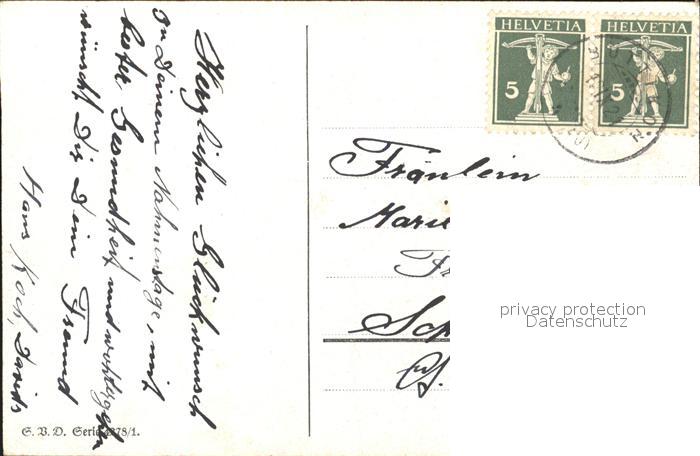 HELVETIA HELVETIA
5 5
Herzlichen Glückwunsch
zu Deinem Nahmenstage, mit
bester Gesundheit und wohlergehen
wünscht Dir Dein Freund
Hans Koch, Davids
S. V. D. Serie 1378/1.
Fräulein
Marie
Fr
Sch
privacy protection
Datenschutz